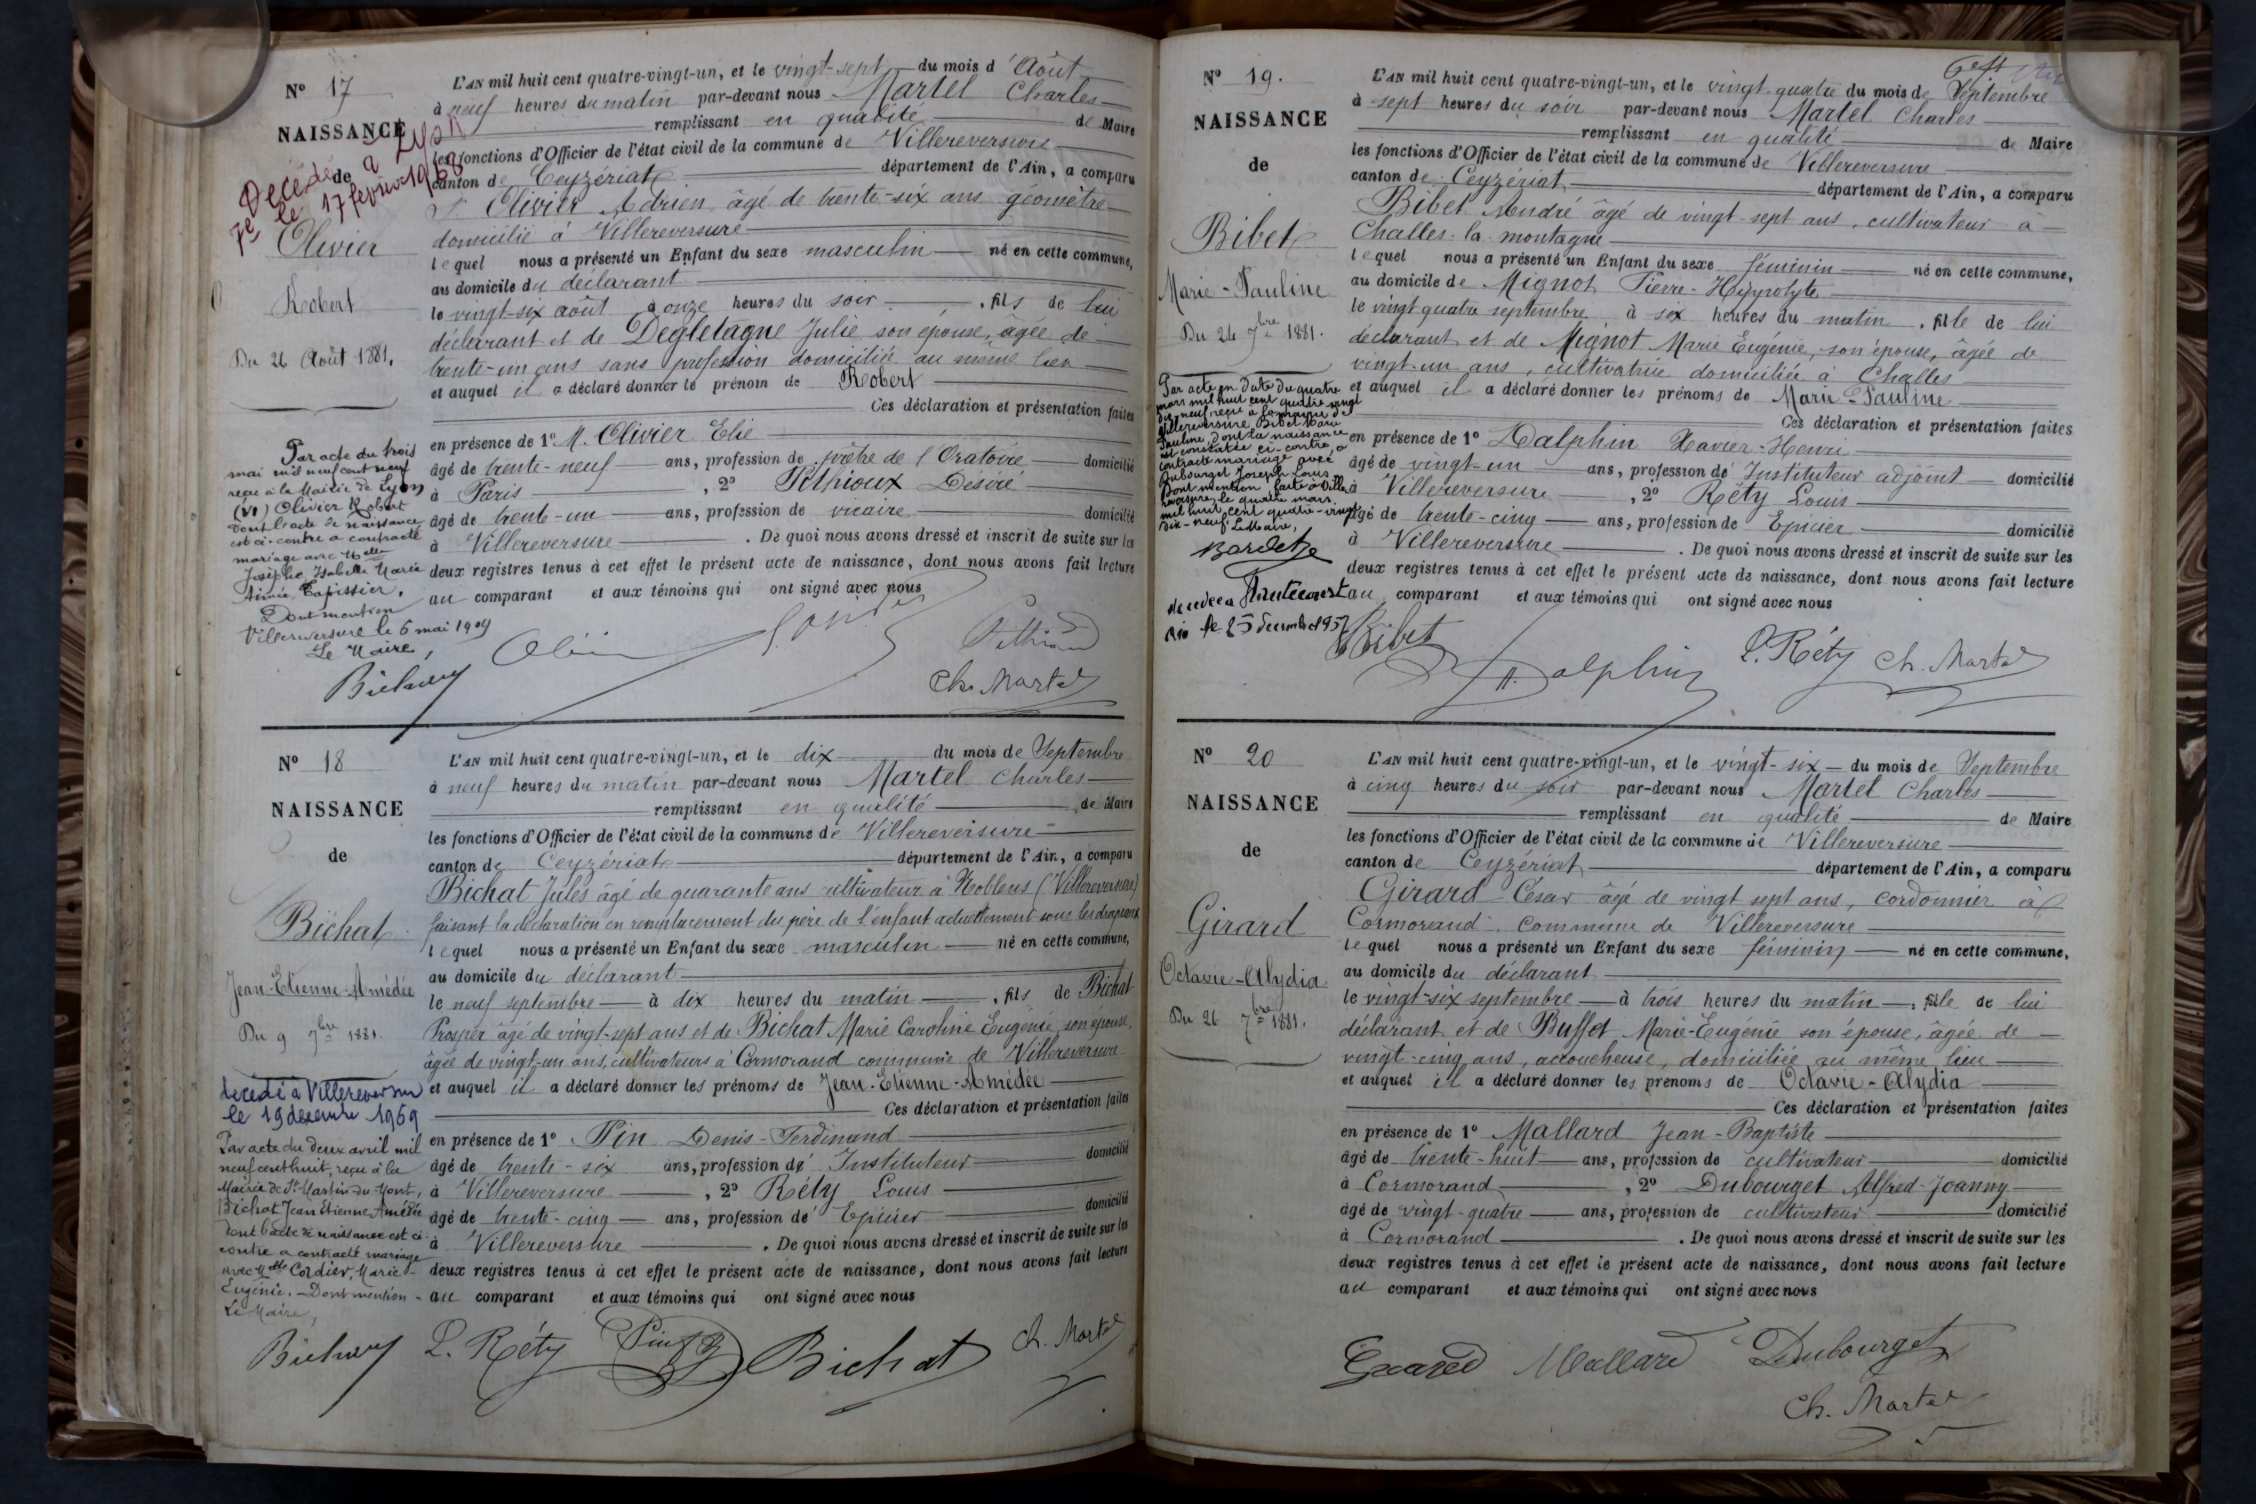 Nº 17
NAISSANCE
de
Décédé à Lyon
7e le 17 février 1968
Olivier
Robert
Du 26 Août 1881.
Par acte du trois
mai mil neuf cent neuf
reçu à la Mairie de Lyon
(VI) Olivier Robert
dont l'acte de naissance
est ci-contre a contracté
mariage avec Melle
Josèphe Isabelle Marie
Aimée Tapissier.
Dont mention
Villereversure le 6 mai 1909
Le Maire,
L'AN mil huit cent quatre-vingt-un, et le vingt-sept du mois d'Août
à neuf heures du matin par-devant nous Martel Charles
remplissant en qualité de Maire
les fonctions d'Officier de l'état civil de la commune de Villereversure
canton de Ceyzériat département de l'Ain, a comparu
Olivier Adrien âgé de trente-six ans géomètre
domicilié à Villereversure
lequel nous a présenté un Enfant du sexe masculin né en cette commune,
au domicile du déclarant
le vingt-six août à onze heures du soir, fils de lui
déclarant et de Degletagne Julie son épouse, âgée de
trente-un ans sans profession domiciliée au même lieu
et auquel il a déclaré donner le prénom de Robert
Ces déclaration et présentation faites
en présence de 1º M. Olivier Elie
âgé de trente-neuf ans, profession de prêtre de l'Oratoire domicilié
à Paris, 2º Pethioux Désiré
âgé de trente-un ans, profession de vicaire domicilié
à Villereversure. De quoi nous avons dressé et inscrit de suite sur les
deux registres tenus à cet effet le présent acte de naissance, dont nous avons fait lecture
au comparant et aux témoins qui ont signé avec nous
Ch. Martel
Nº 18
NAISSANCE
de
Bichat
Jean-Etienne-Amédée
Du 9 7bre 1881.
décédé à Villereversure
le 19 décembre 1969
Par acte du deux avril mil
neuf cent huit, reçu à la
Mairie de St Martin du Mont,
Bichat Jean Etienne Amédée
dont l'acte de naissance est ci-
contre a contracté mariage
avec Melle Cordier, Marie-
Eugénie. Dont mention
Le Maire,
L'AN mil huit cent quatre-vingt-un, et le dix du mois de Septembre
à neuf heures du matin par-devant nous Martel Charles
remplissant en qualité de Maire
les fonctions d'Officier de l'état civil de la commune de Villereversure
canton de Ceyzériat département de l'Ain, a comparu
Bichat Jules âgé de quarante ans cultivateur à Noblens (Villereversure)
faisant la déclaration en remplacement du père de l'enfant actuellement sous les drapeaux
lequel nous a présenté un Enfant du sexe masculin né en cette commune,
au domicile du déclarant
le neuf septembre à dix heures du matin, fils de Bichat
Prosper âgé de vingt-sept ans et de Bichat Marie Caroline Eugénie son épouse,
âgée de vingt-un ans, cultivateurs à Cormorand commune de Villereversure
et auquel il a déclaré donner les prénoms de Jean-Etienne-Amédée
Ces déclaration et présentation faites
en présence de 1º Pin Denis-Ferdinand
âgé de trente-six ans, profession de Instituteur domicilié
à Villereversure, 2º Réty Louis
âgé de trente-cinq ans, profession de Epicier domicilié
à Villereversure. De quoi nous avons dressé et inscrit de suite sur les
deux registres tenus à cet effet le présent acte de naissance, dont nous avons fait lecture
au comparant et aux témoins qui ont signé avec nous
L. Réty Pin Bichat Ch. Martel
Nº 19.
NAISSANCE
de
Bibet
Marie-Pauline
Du 24 7bre 1881.
Par acte en date du quatre
mars mil huit cent quatre vingt
dix-neuf, reçu à la mairie de
Villereversure Bibet Marie
Pauline, dont la naissance
est constatée ci-contre, a
contracté mariage avec
Dubourget Joseph Louis
Dont mention faite à Ville-
reversure, le quatre mars
mil huit cent quatre-vingt
dix-neuf. Le Maire,
décédée à Hautecourt
Ain le 25 décembre 1957
L'AN mil huit cent quatre-vingt-un, et le vingt-quatre du mois de Septembre
à sept heures du soir par-devant nous Martel Charles
remplissant en qualité de Maire
les fonctions d'Officier de l'état civil de la commune de Villereversure
canton de Ceyzériat département de l'Ain, a comparu
Bibet André âgé de vingt-sept ans, cultivateur à
Challes-la-montagne
lequel nous a présenté un Enfant du sexe féminin né en cette commune,
au domicile de Mignot Pierre-Hyppolyte
le vingt quatre septembre à six heures du matin, fille de lui
déclarant et de Mignot Marie Eugénie, son épouse, âgée de
vingt-un ans, cultivatrice domiciliée à Challes
et auquel il a déclaré donner les prénoms de Marie-Pauline
Ces déclaration et présentation faites
en présence de 1º Dalphin Xavier-Henri
âgé de vingt-un ans, profession de Instituteur adjoint domicilié
à Villereversure, 2º Réty Louis
âgé de trente-cinq ans, profession de Epicier domicilié
à Villereversure. De quoi nous avons dressé et inscrit de suite sur les
deux registres tenus à cet effet le présent acte de naissance, dont nous avons fait lecture
au comparant et aux témoins qui ont signé avec nous
Bibet H. Dalphin L. Réty Ch. Martel
Nº 20
NAISSANCE
de
Girard
Octavie-Alydia
Du 26 7bre 1881.
L'AN mil huit cent quatre-vingt-un, et le vingt-six du mois de Septembre
à cinq heures du soir par-devant nous Martel Charles
remplissant en qualité de Maire
les fonctions d'Officier de l'état civil de la commune de Villereversure
canton de Ceyzériat département de l'Ain, a comparu
Girard César âgé de vingt sept ans, cordonnier à
Cormorand, commune de Villereversure
lequel nous a présenté un Enfant du sexe féminin né en cette commune,
au domicile du déclarant
le vingt-six septembre à trois heures du matin, fille de lui
déclarant et de Buffet Marie-Eugénie son épouse, âgée de
vingt-cinq ans, accoucheuse, domiciliée au même lieu
et auquel il a déclaré donner les prénoms de Octavie-Alydia
Ces déclaration et présentation faites
en présence de 1º Mallard Jean-Baptiste
âgé de trente-huit ans, profession de cultivateur domicilié
à Cormorand, 2º Dubourget Alfred-Joanny
âgé de vingt-quatre ans, profession de cultivateur domicilié
à Cormorand. De quoi nous avons dressé et inscrit de suite sur les
deux registres tenus à cet effet le présent acte de naissance, dont nous avons fait lecture
au comparant et aux témoins qui ont signé avec nous
Girard Mallard Dubourget
Ch. Martel